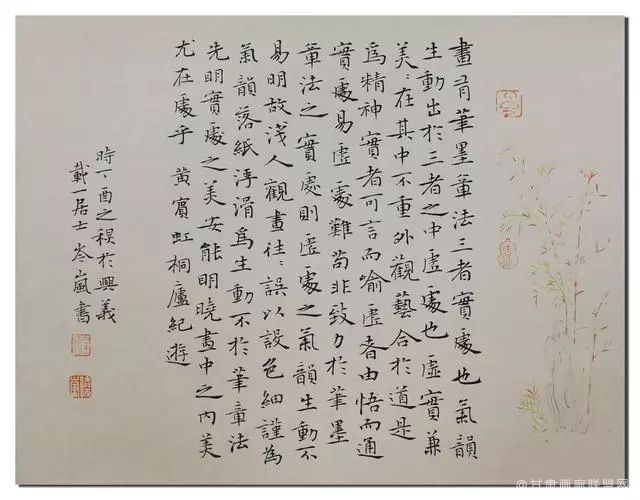 畫有筆墨章法三者實處也氣韻
生動出於三者之中虛處也虛實兼
美〻在其中不重外觀藝合於道是
為精神實者可言而喻虛者由悟而通
實處易虛處難苟非致力於筆墨
章法之實處則虛處之氣韻生動不
易明故淺人觀畫往〻誤以設色細謹為
氣韻落紙浮滑為生動不於筆章法
先明實處之美安能明曉畫中之內美
尤在處乎 黃賓虹桐廬紀遊
時丁酉之秋於興義
載一居士岑嵐書
@甘肃画廊联盟网